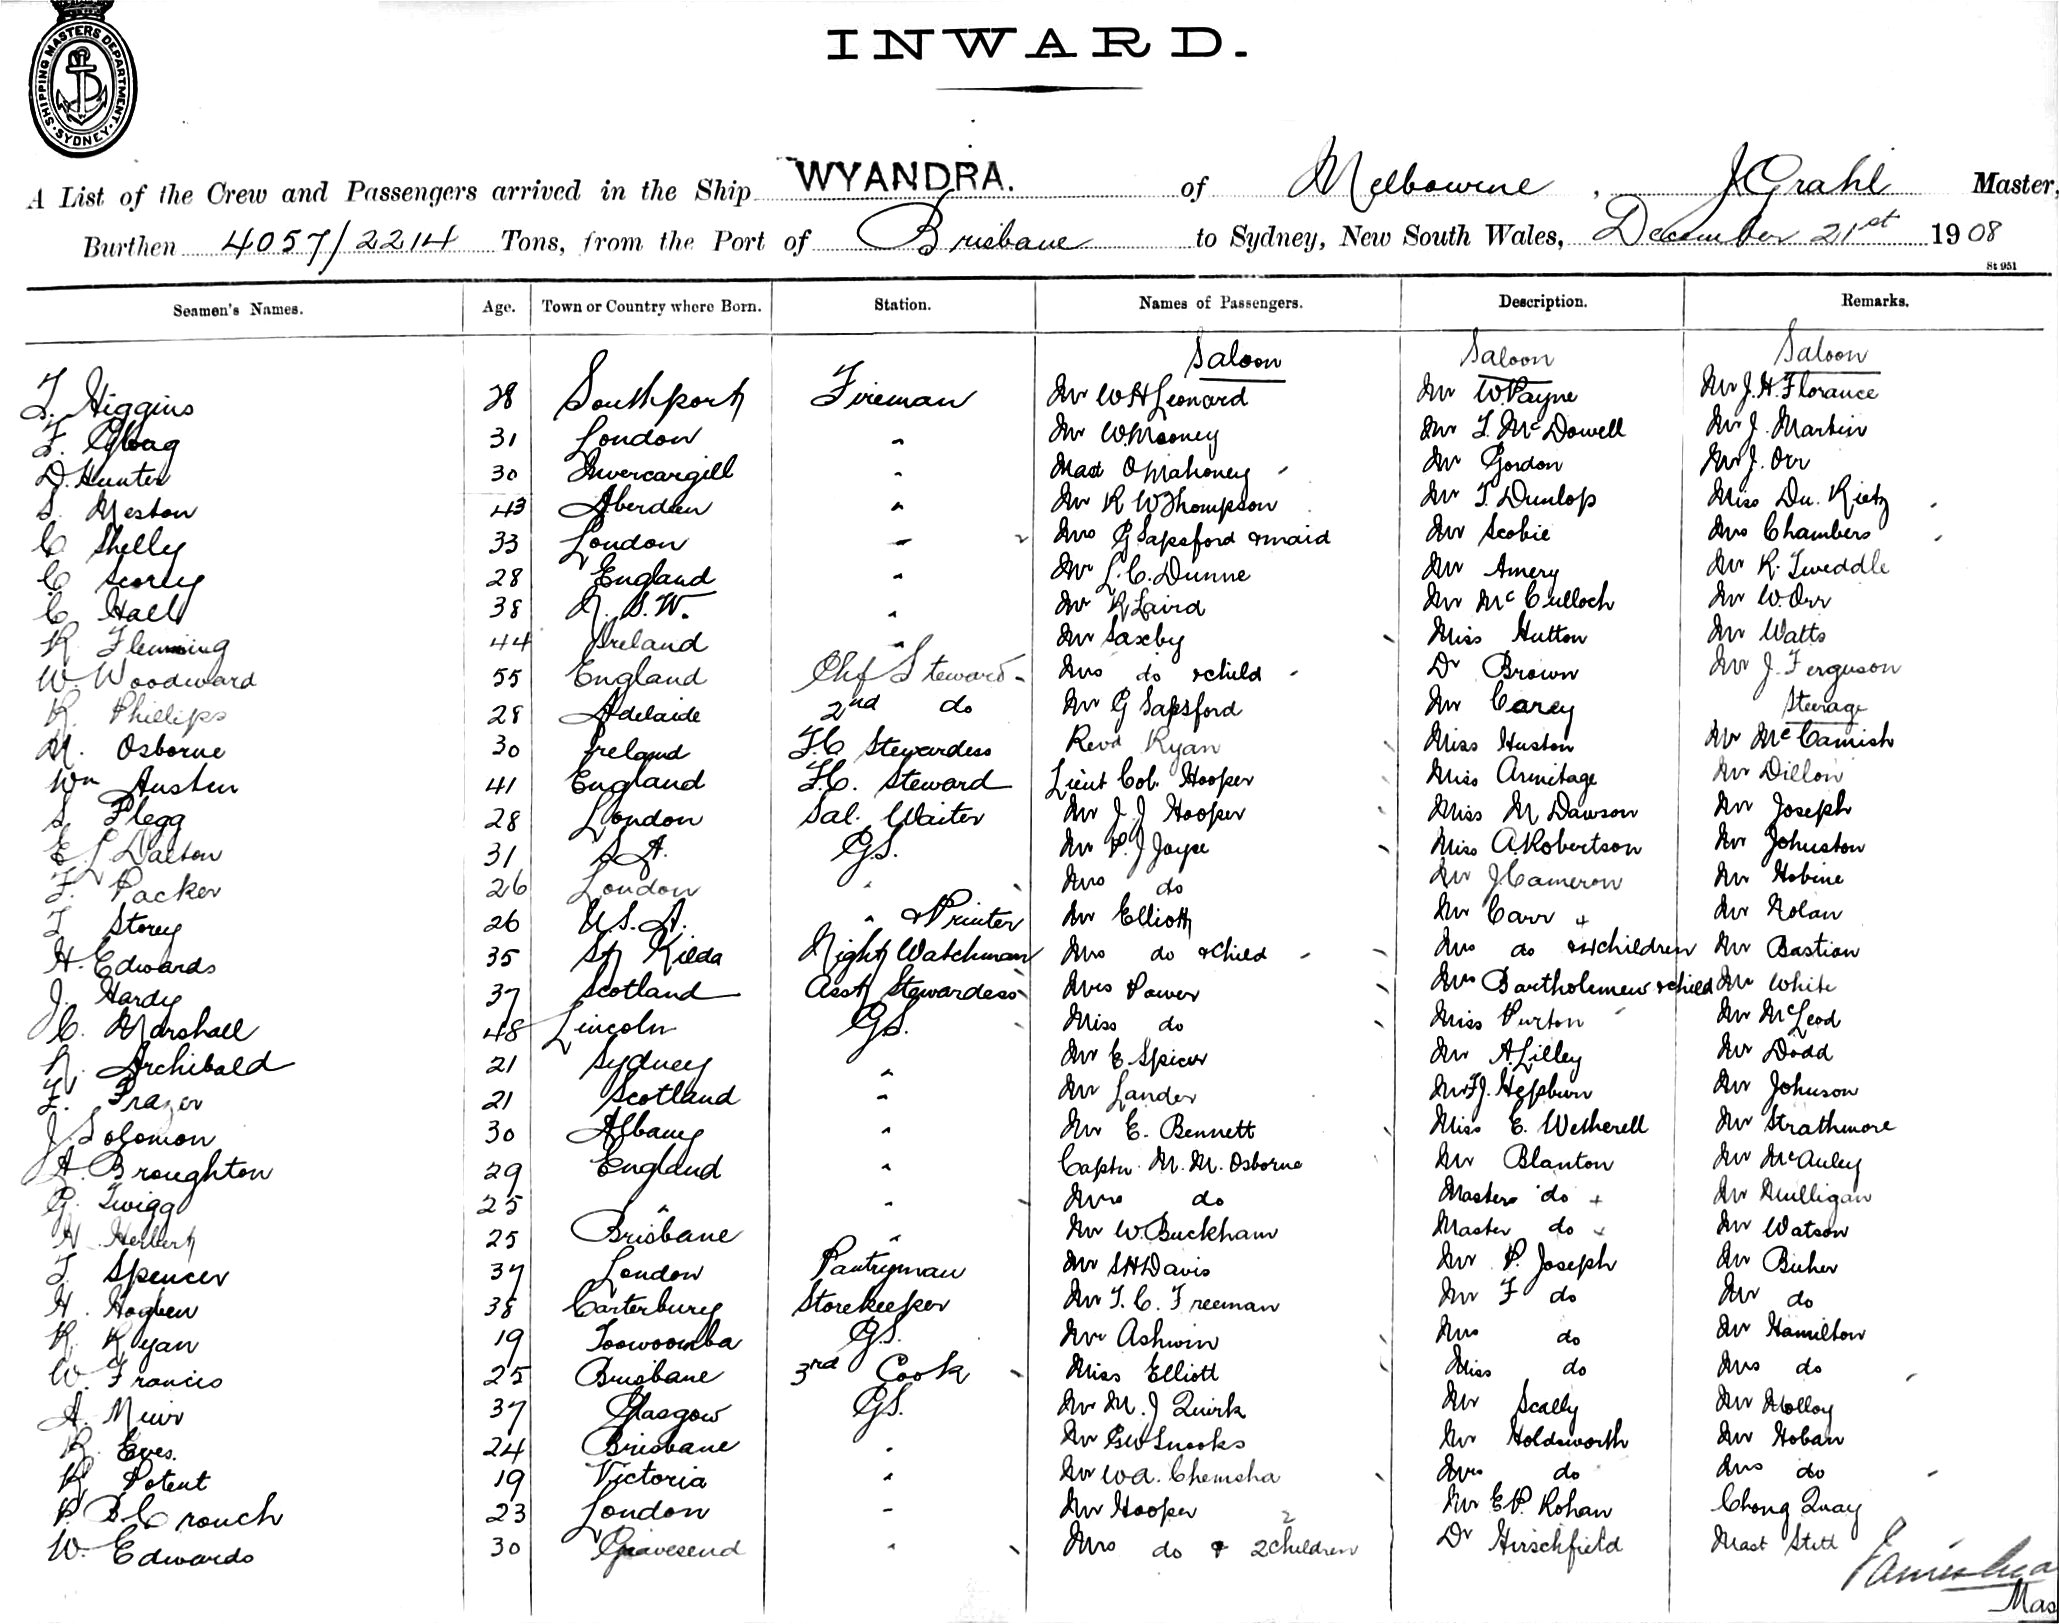 SHIPPING MASTERS DEPARTMENT · SYDNEY ·
INWARD.
A List of the Crew and Passengers arrived in the Ship WYANDRA. of Melbourne, J Grahl Master,
Burthen 4057/2214 Tons, from the Port of Brisbane to Sydney, New South Wales, December 21st 1908
St 951
Seamen's Names. Age. Town or Country where Born. Station. Names of Passengers. Description. Remarks.
Saloon Saloon Saloon
T. Higgins 28 Southport Fireman Mr W H Leonard Mr W Payne Mr J. H. Florance
F. 31 London " Mr W. Mooney Mr T. McDowell Mr J. Martin
D. Hunter 30 Invercargill " Mast O Mahoney Mr Gordon Mr J. Orr
S. Meston 43 Aberdeen " Mr R W Thompson Mr T. Dunlop Miss Du. Rietz
C Shelly 33 London " Mrs G Sapsford & maid Mr Scobie Mrs Chambers
C Scorey 28 England " Mr L. C. Dunne Mr Amery Mr R. Tweddle
C Hall 38 N. S. W. " Mr R Laird Mr McCulloch Mr W. Orr
R Flemming 44 Ireland " Mr Saxby Miss Hutton Mr Watts
W. Woodward 55 England Chf Steward Mrs do & child Dr Brown Mr J. Ferguson
R. Phillips 28 Adelaide 2nd do Mr G Sapsford Mr Carey Steerage
M. Osborne 30 Ireland F.C Stewardess Revd Ryan Miss Huston Mr McCamish
Wm Austin 41 England F.C. Steward Lieut Col. Hooper Miss Armitage Mr Dillon
S. Flegg 28 London Sal. Waiter Mr J. J Hooper Miss M Dawson Mr Joseph
E L Dalton 31 S. A. G.S. Mr P. J Joyce Miss A. Robertson Mr Johnston
F. Packer 26 London " Mrs do Mr J Cameron Mr Hobine
T Storey 26 U.S.A. " & Printer Mr Elliott Mr Carr + Mr Nolan
H. Edwards 35 St Kilda Night Watchman Mrs do & child Mrs do & 4 children Mr Bastian
J. Hardy 37 Scotland Asst Stewardess Mrs Power Mrs Bartholemew & child Mr White
C. Marshall 48 Lincoln G.S. Miss do Miss Purton Mr McLeod
R. Archibald 21 Sydney " Mr E Spicer Mr A. Lilley Mr Dodd
F. Frazer 21 Scotland " Mr Lander Mr F. J. Hepburn Mr Johnson
J. Solomon 30 Albany " Mr E. Bennett Miss E. Wetherell Mr Strathmore
A Broughton 29 England " Captn M. M. Osborne Mr Blanton Mr McAuley
G. Twigg 25 " " Mrs do Masters do + Mr Mulligan
H Herbert 25 Brisbane " Mr W. Buckham Master do + Mr Watson
T Spencer 37 London Pantryman Mr S H Davis Mr P. Joseph Mr Buher
H. Hogben 38 Carterbury Storekeeper Mr T. C. Freeman Mr F do Mr do
R. Ryan 19 Toowoomba G.S. Mr Ashwin Mrs do Mr Hamilton
W. Francis 25 Brisbane 3rd Cook Miss Elliott Miss do Mrs do
A. Muir 37 Glasgow G.S. Mr M. J Quirk Mr Scally Mr Molloy
R. Eves. 24 Brisbane " Mr G W Snooks Mr Holdsworth Mr Hoban
R Potent 19 Victoria " Mr W. A. Chemsha Mrs do Mrs do
P. B. Crouch 23 London " Mr Hooper Mr E P. Rohan Chong Quay
W. Edwards 30 Gravesend " Mrs do & 2 children Dr Hirschfield Mast Stitt
Mas